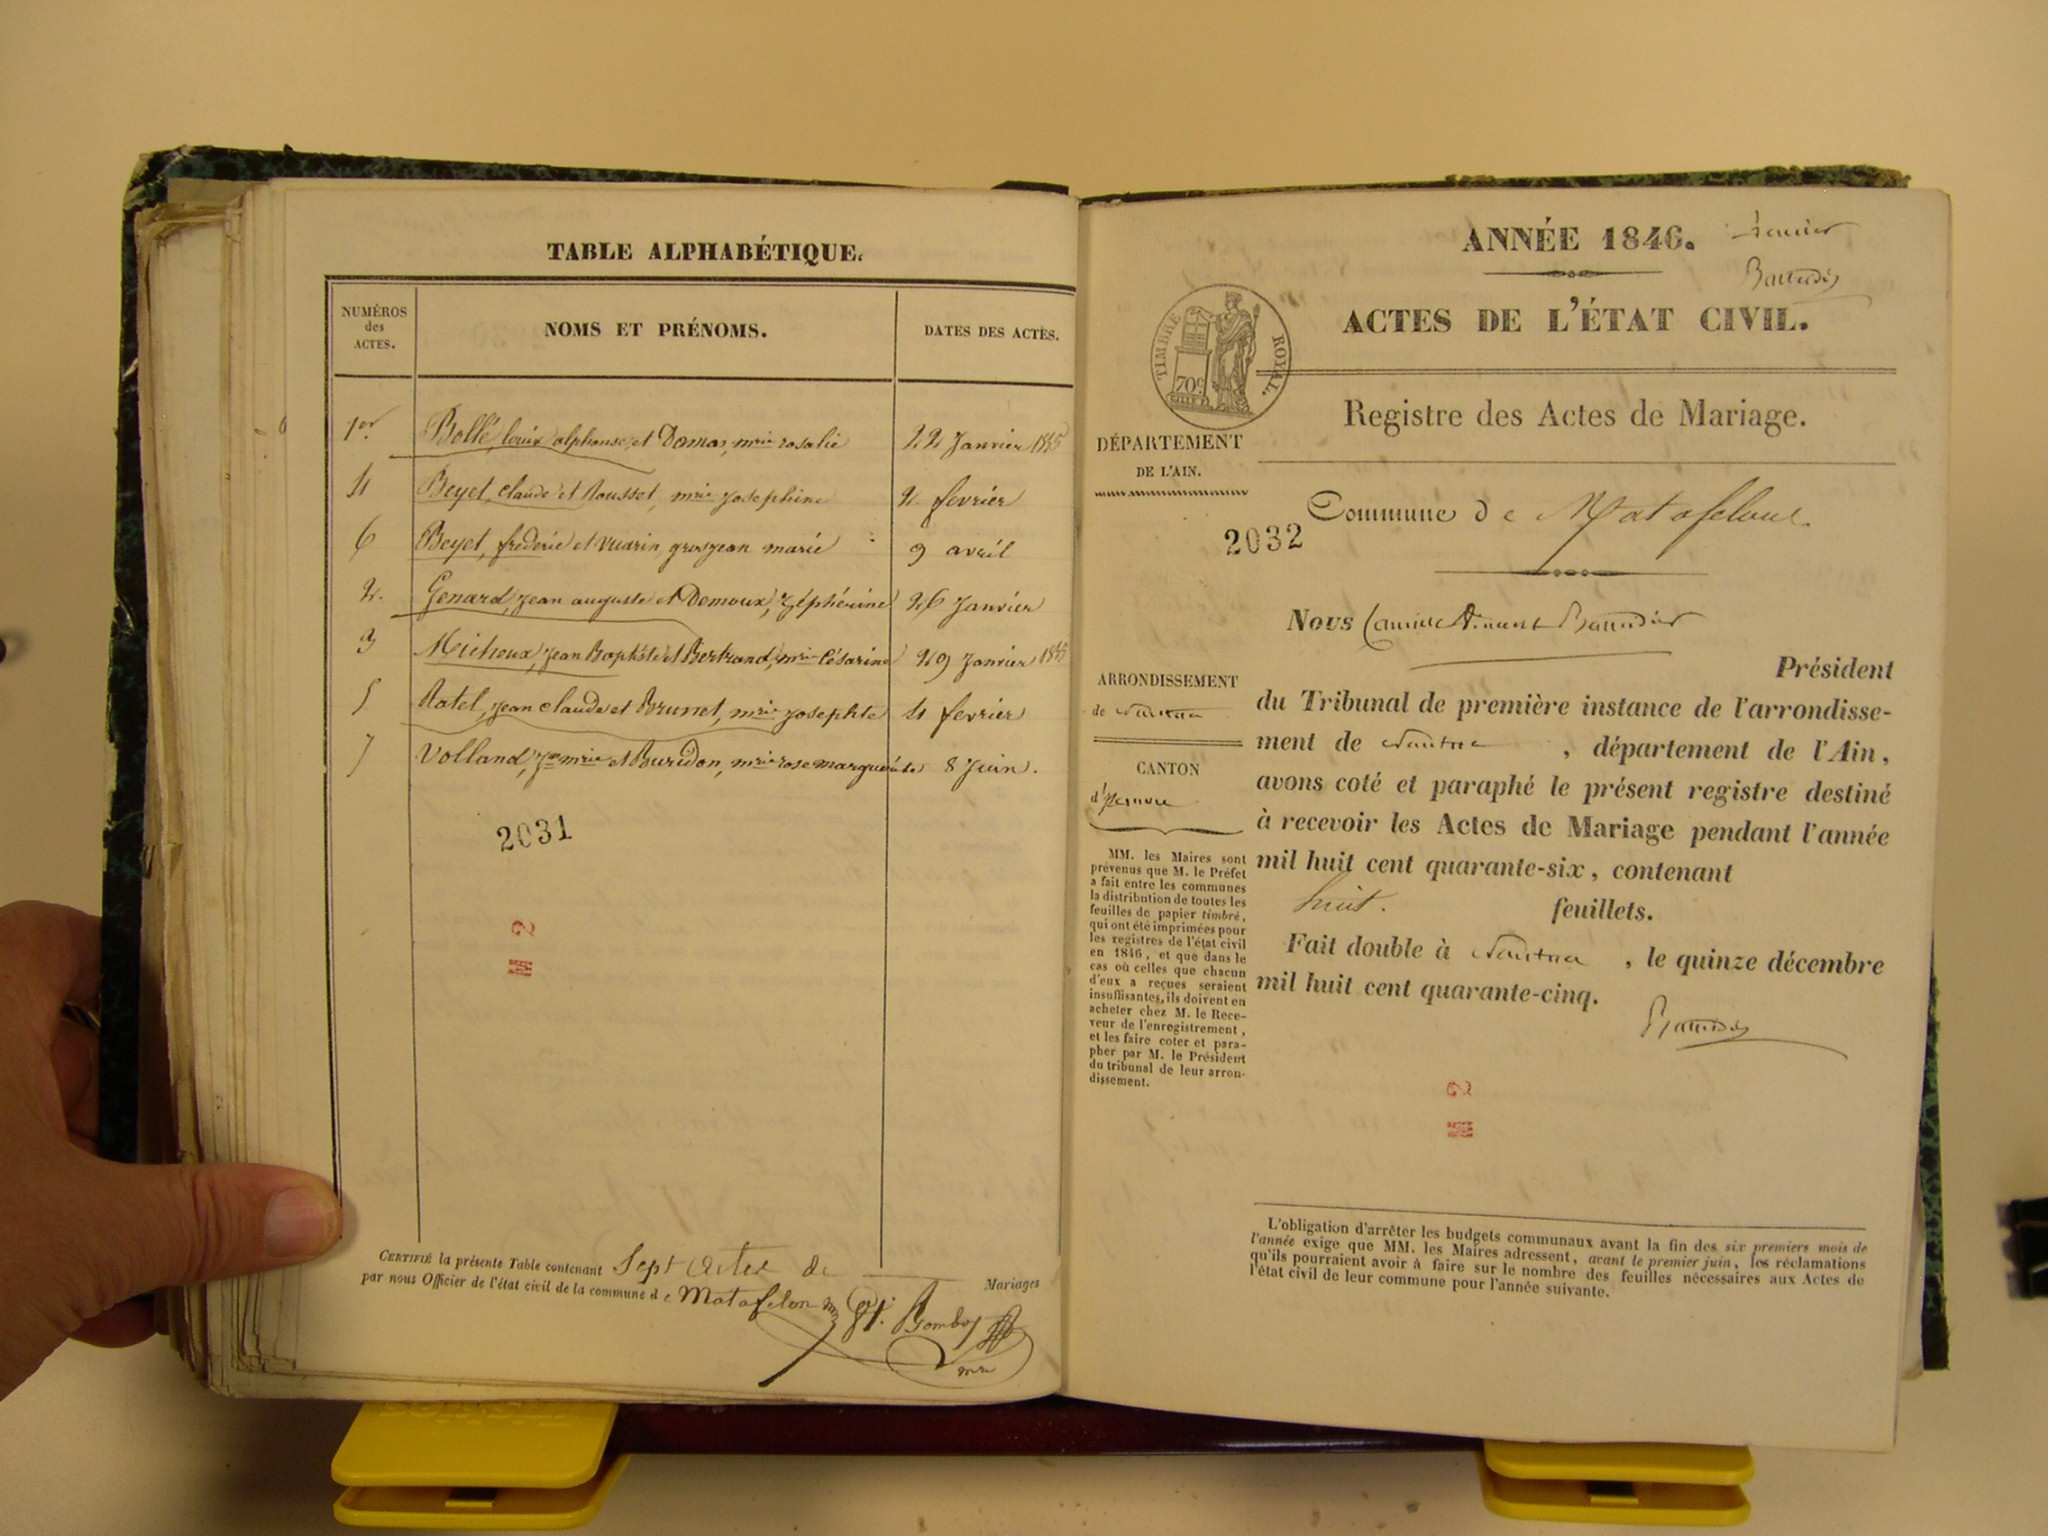 TABLE ALPHABÉTIQUE.
NUMÉROS
des
ACTES.
NOMS ET PRÉNOMS.
DATES DES ACTES.
1er Bollé, louis alphonse, et Domas, mrie rosalie 22 Janvier 1845
4 Beyet, claude et Rousset, mrie josephine 2 fevrier
6 Beyet, frederic et vuarin, grosjean marie 9 avril
2. Genard, jean auguste et Demoux, zéphérine 26 Janvier
3 Micheux, jean Baptiste et Bertrand, mrie Césarine 29 Janvier 1845
5 Ratel, jean claude et Brunet, mrie josephte 4 fevrier
7 Volland, Jn mrie et Buridon, mrie rose marguerite 8 Juin.
2031
M 2
CERTIFIÉ la présente Table contenant Sept actes de Mariages
par nous Officier de l'état civil de la commune de Matafelon
ANNÉE 1846. premier
ACTES DE L'ÉTAT CIVIL.
TIMBRE ROYAL.
70c
Registre des Actes de Mariage.
DÉPARTEMENT
DE L'AIN.
Commune de Matafelon.
2032
Nous
Président
ARRONDISSEMENT
de Nantua
du Tribunal de première instance de l'arrondisse-
ment de Nantua , département de l'Ain,
CANTON
d'Izernore
avons coté et paraphé le présent registre destiné
à recevoir les Actes de Mariage pendant l'année
mil huit cent quarante-six, contenant
huit. feuillets.
Fait double à Nantua , le quinze décembre
mil huit cent quarante-cinq.
MM. les Maires sont
prévenus que M. le Préfet
a fait entre les communes
la distribution de toutes les
feuilles de papier timbré,
qui ont été imprimées pour
les registres de l'état civil
en 1846, et que dans le
cas où celles que chacun
d'eux a reçues seraient
insuffisantes, ils doivent en
acheter chez M. le Rece-
veur de l'enregistrement,
et les faire coter et para-
pher par M. le Président
du tribunal de leur arron-
dissement.
M 2
L'obligation d'arrêter les budgets communaux avant la fin des six premiers mois de
l'année exige que MM. les Maires adressent, avant le premier juin, les réclamations
qu'ils pourraient avoir à faire sur le nombre des feuilles nécessaires aux Actes de
l'état civil de leur commune pour l'année suivante.